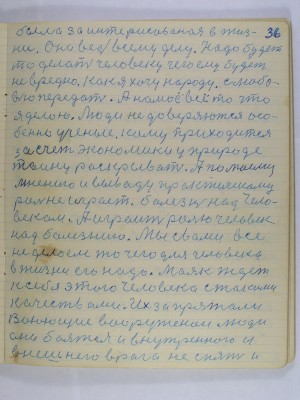 36
была заинтерисованая в жиз-
ни. Оно вет всему делу. Надо будет
то делат человеку чего ему будет
не вредно. Как я хочу народу
передат. А на моё всё то что
я делаю. Люди не доверяются осо-
бенно учение, кому приходится
за счет экономики у природе
таину раскриват. А по моему
мнению и выводу практическому
рол не играет. болезнь над чело-
веком. А играит ролю человек
над болезнию. Мы с вами все
не делаем то чего для человека
в жизни его надо. Маяк ждет
к себя этого человека с такими
качествами. Их запрятали
Воюющие вооруженом люди
они боятся и внутренного и
внешнего врага не спят и